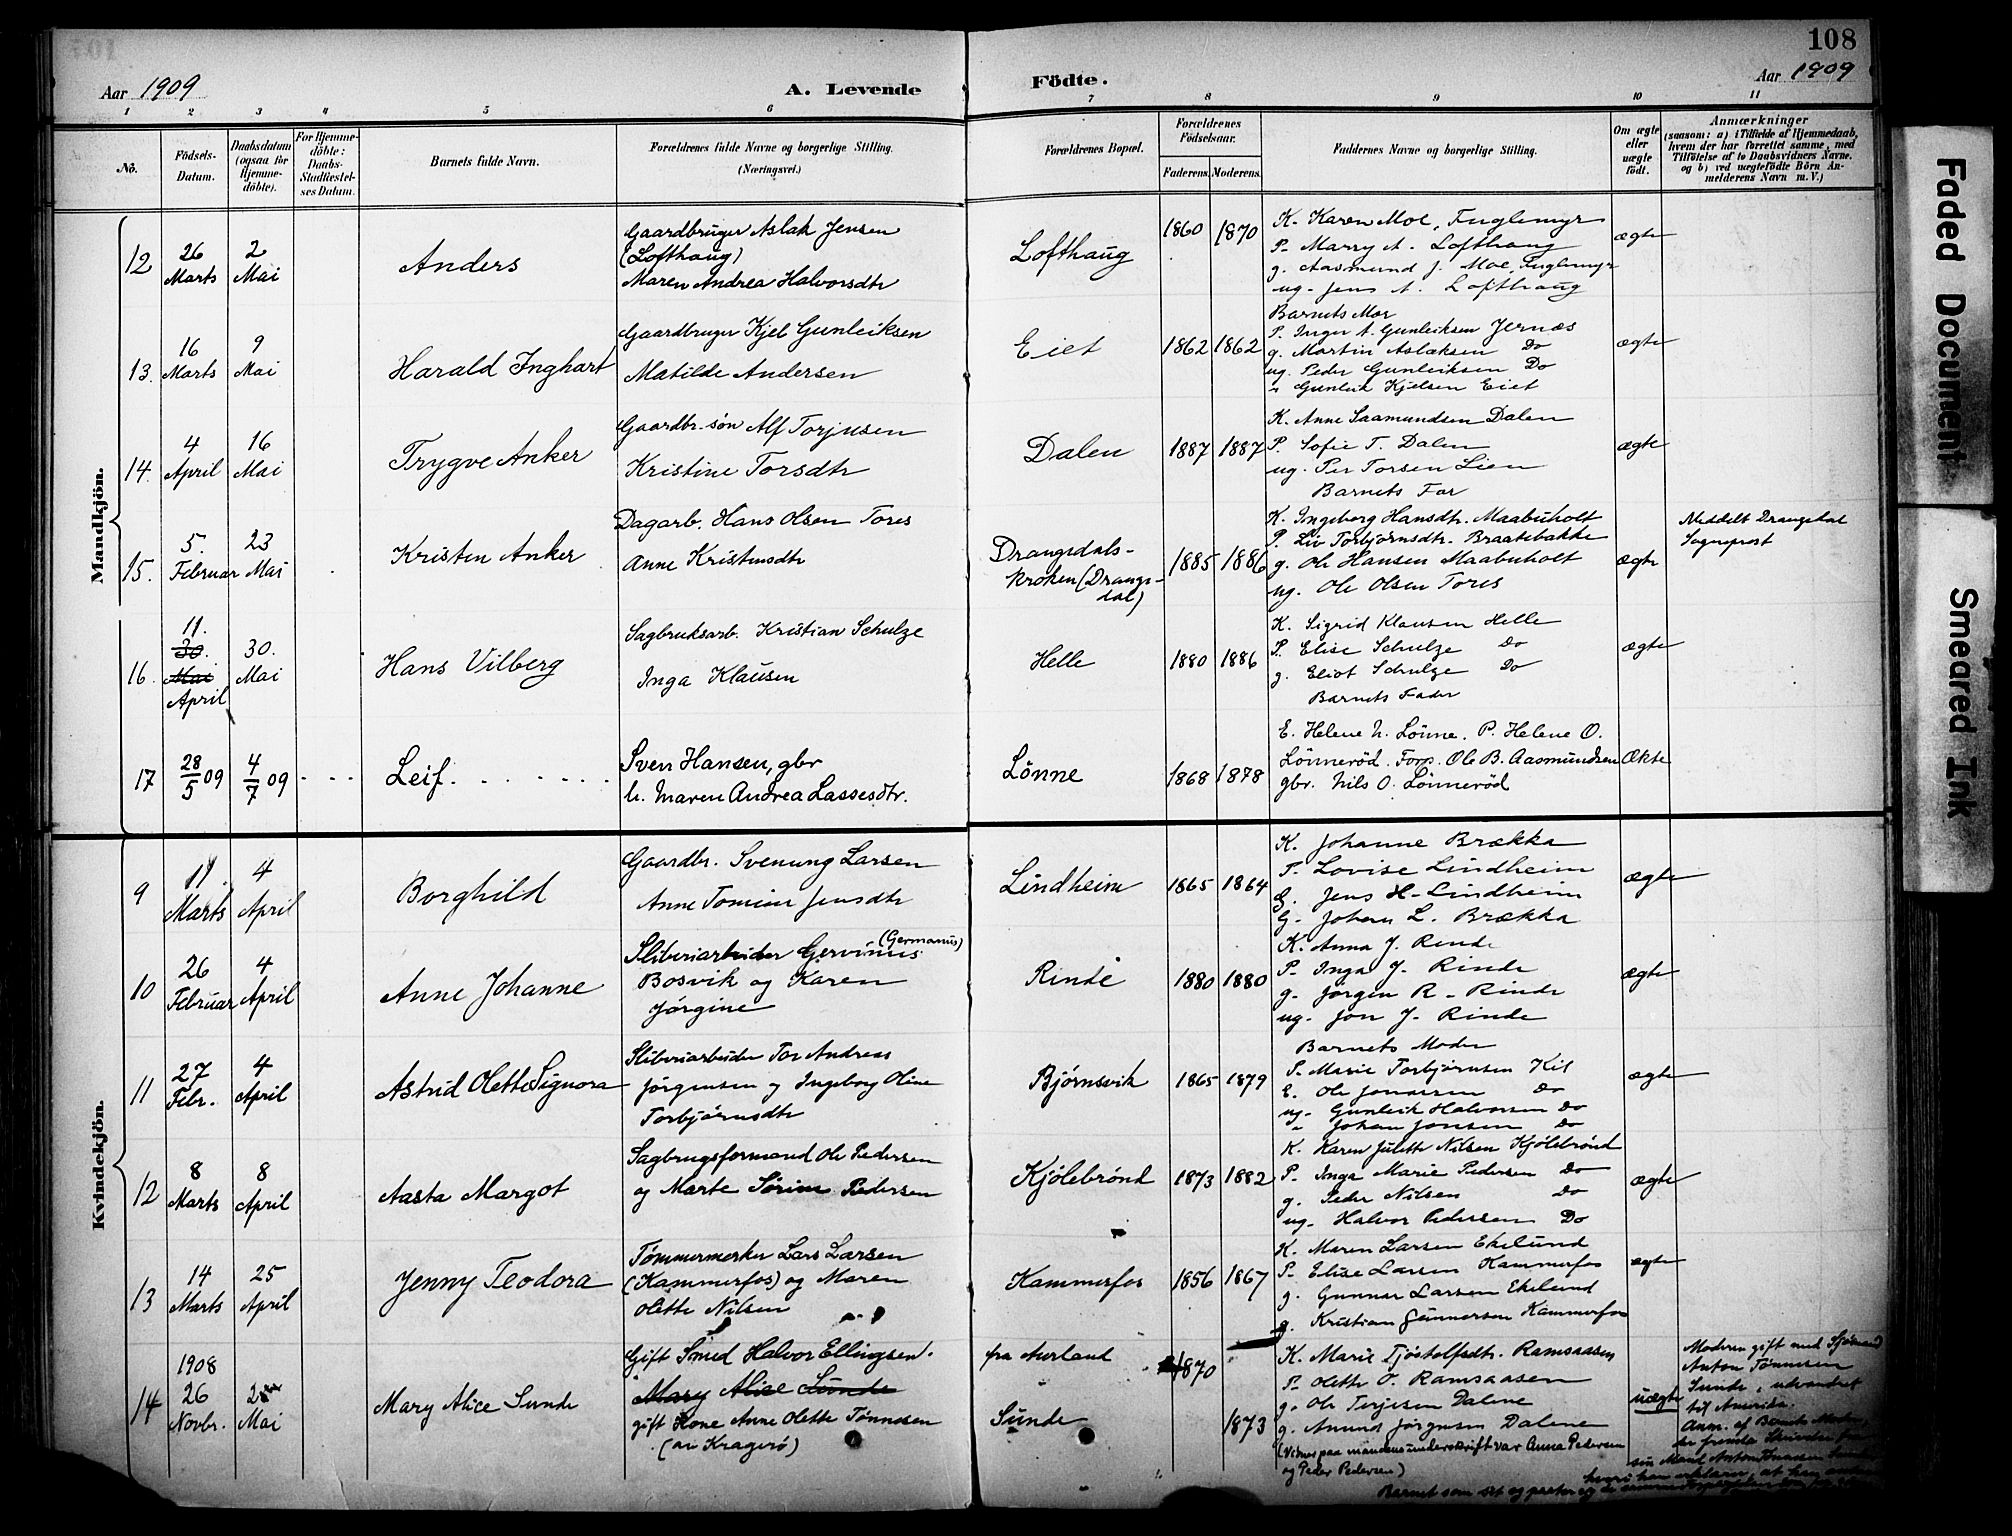 108
Aar 1909
A. Levende
Födte.
Aar 1909
1 2 3 4 5 6 7 8 9 10 11
No.
Födsels-Datum.
Daabsdatum (ogsaa for Hjemme-döbte).
For Hjemme-döbte: Daabs-Stadfæstel-ses Datum.
Barnets fulde Navn.
Forældrenes fulde Navne og borgerlige Stilling. (Næringsvei.)
Forældrenes Bopæl.
Forældrenes Födselsaar.
Faderens. Moderens.
Faddernes Navne og borgerlige Stilling.
Om ægte eller uægte födt.
Anmærkninger
(saasom: a) i Tilfælde af Hjemmedaab, hvem der har forrettet samme, med Tilföielse af to Daabsvidners Navne, og b) ved uægtefödte Börn An-melderens Navn m. V.)
Mandkjön.
12 26 Marts 2 Mai Anders
Gaardbruger Aslak Jensen
(Lofthaug)
Maren Andrea Halvorsdtr
Lofthaug 1860 1870
K. Karen Moe, Fuglemyr
P. Marry A. Lofthaug
g. Aasmund J. Moe, Fuglemyr
ug. Jens A. Lofthaug
ægte
13. 16 Marts 9 Mai Harald Inghart
Gaardbruger Kjel Gunleiksen
Matilde Andersen
Eiet 1862 1862
Barnets Mor
P. Inger A. Gunleiksen Jernæs
g. Martin Aslaksen Do
ug. Peder Gunleiksen Do
" Gunleik Kjelsen Eiet
ægte
14. 4 April 16 Mai Trygve Anker
Gaardbr. søn Alf Torjusen
Kristine Torsdtr
Dalen 1887 1887
K. Anne Saamundsen Dalen
P. Sofie T. Dalen
ug. Per Torsen Lien
Barnets Far
ægte
15. 5. Februar 23 Mai Kristen Anker
Dagarb. Hans Olsen Tores
Anne Kristensdtr
Drangsdals-
kroken (Drangs-
dal)
1885 1886
K. Ingeborg Hansdtr. Maabuholt
P. Liv Torbjørnsdtr. Braatebakke
g. Ole Hansen Maabuholt
ug. Ole Olsen Tores
ægte
Meddelt Drangedal
Sogneprest
16. 11. 30. Mai April 30. Mai Hans Vilberg
Sagbruksarb. Kristian Schulze
Inga Klausen
Helle 1880 1886
K. Sigrid Klausen Helle
P. Elise Schulze Do
g. Eliot Schulze Do
Barnets Fader
ægte
17 28/5 09 4/7 09 Leif.
Sven Hansen, gbr
h. Maren Andrea Lassesdtr.
Lönne 1868 1878
E. Helene N. Lönne. P. Helene O.
Lönneröd. Forp. Ole B. Aasmundsen
gbr. Nils O. Lönneröd
Ækte
Kvindekjön.
9 11. Marts 4 April Borghild
Gaardbr. Svenung Larsen
Anne Tomine Jensdtr
Lindheim 1865 1864
K. Johanne Brækka
P. Lovise Lindheim
G. Jens H. Lindheim
G. Johan L. Brækka
ægte
10 26 Februar 4 April Anne Johanne
Sliberiarbeider Gervinus (Germanus)
Bosvik og Karen
Jørgine
Rinde 1880 1880
K. Anna J. Rinde
P. Inga J. Rinde
g. Jørgen R. Rinde
ug. Jon J. Rinde
ægte
11 27 Febr. 4 April Astrid Olette Signora
Sliberiarbeider Tor Andreas
Jørgensen og Ingeborg Oline
Torbjørnsdtr
Bjørnsvik 1865 1879
Barnets Moder
P. Marie Torbjørnsen Kil
E. Ole Jonassen Do
ug. Gunleik Halvorsen Do
" Johan Jonsen Do
ægte
12 8 Marts 8 April Aasta Margot
Sagbrugsformand Ole Pedersen
og Marte Sørine Pedersen
Kjølebrønd 1873 1882
K. Karen Julette Nilsen Kjølebrønd
P. Inga Marie Pedersen Do
g. Peder Nilsen Do
ug. Halvor Pedersen Do
ægte
13 14 Marts 25 April Jenny Teodora
Tømmermerker Lars Larsen
(Kammerfos) og Maren
Olette Nilsen
Kammerfos 1856 1867
K. Maren Larsen Ekelund
P. Elise Larsen Kammerfos
g. Gunnar Larsen Ekelund
g. Kristian Gunnersen Kammerfos
ægte
14 1908 26 Novbr. Mai Mary Alice Sunde
Gift Smed Halvor Ellingsen.
Mary Alice Sunde
gift Kone Anne Olette Tønnesen
(av Kragerø)
fra Aurland
Sunde
1870
1873
K. Marie Tjöstolfsdtr. Ramsaasen
P. Olette O. Ramsaasen
g. Ole Terjesen Dalene
g. Amund Jørgensen Dalene
(Vidner paa mandens underskrift var Anna Pedersen
og Peder Pedersen)
uægte
Moderen gift med Sjömand
Anton Tønnesen
Sunde, udvandret
til Amerika.
Anm. af Barnets Moder,
Faded Document
Smeared Ink